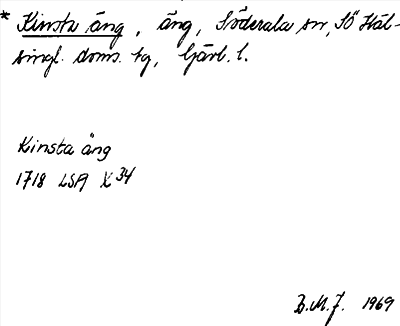 * Kinsta äng, äng, Söderala sn, SÖ Häl-
singl. doms. tg, Gävl. l.
Kinsta äng
1718 LSA X 34
B.M.J. 1969